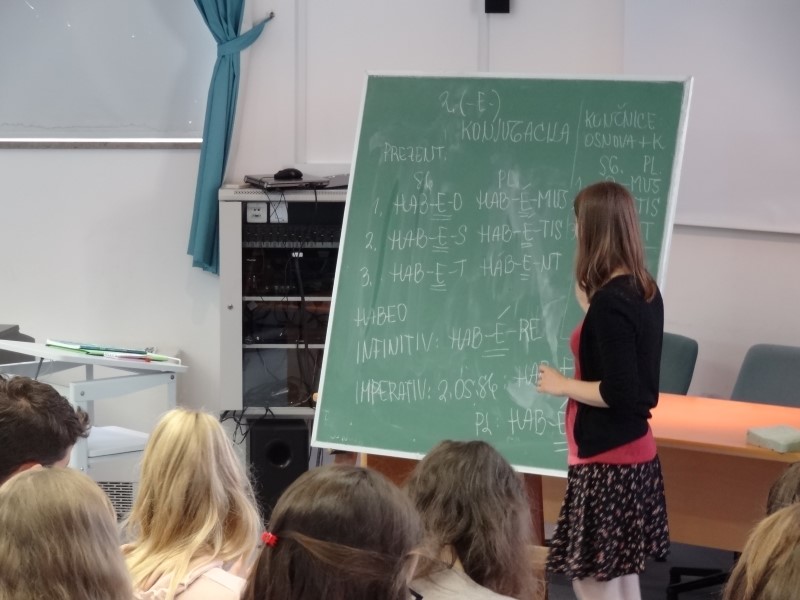 2. (-E-)
KONJUGACIJA
KONČNICE
OSNOVA + K
PREZENT:
SG. PL
SG. PL
-MUS
1. HAB-E-O HAB-É-MUS
TIS
2. HAB-E-S HAB-É-TIS
T
3. HAB-E-T HAB-E-NT
HABEO
INFINITIV: HAB-É-RE
IMPERATIV: 2.OS.SG HAB-
PL: HAB-E